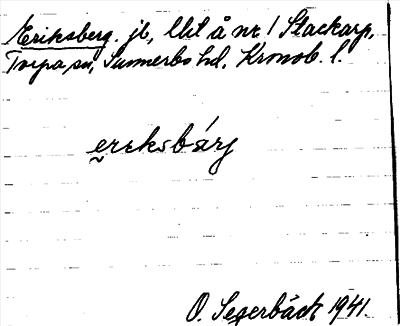 Eriksberg. jb, lht å nr 1 Stackarp,
Torpa sn, Sunnerbo hd, Kronob. l.
ereksbárj
O. Segerbäck 1941.